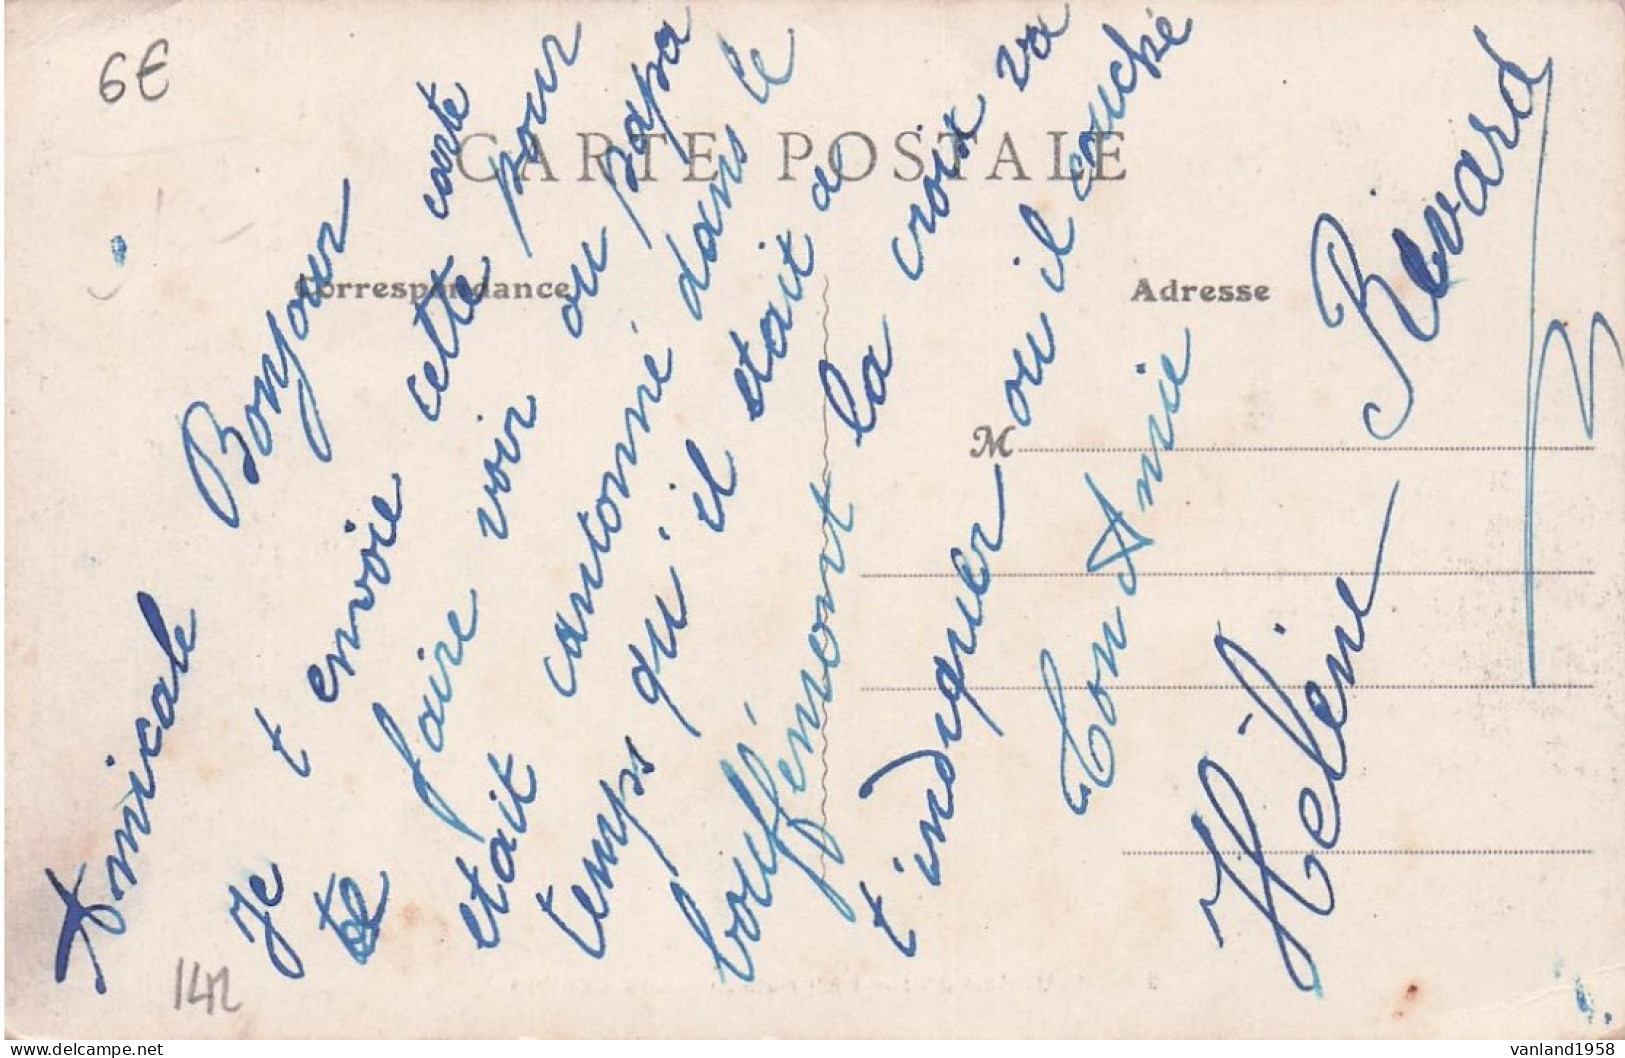 6€
CARTE POSTALE
Correspondance
Adresse
M
Amicale Bonjour
Je t envoie cette carte
te faire voir ou papa pour
etait cantonné dans le
temps qu'il etait a
bouffémont la croix va
t'indiquer ou il couché
ton Amie
Hélène Révard
142
vanland1958